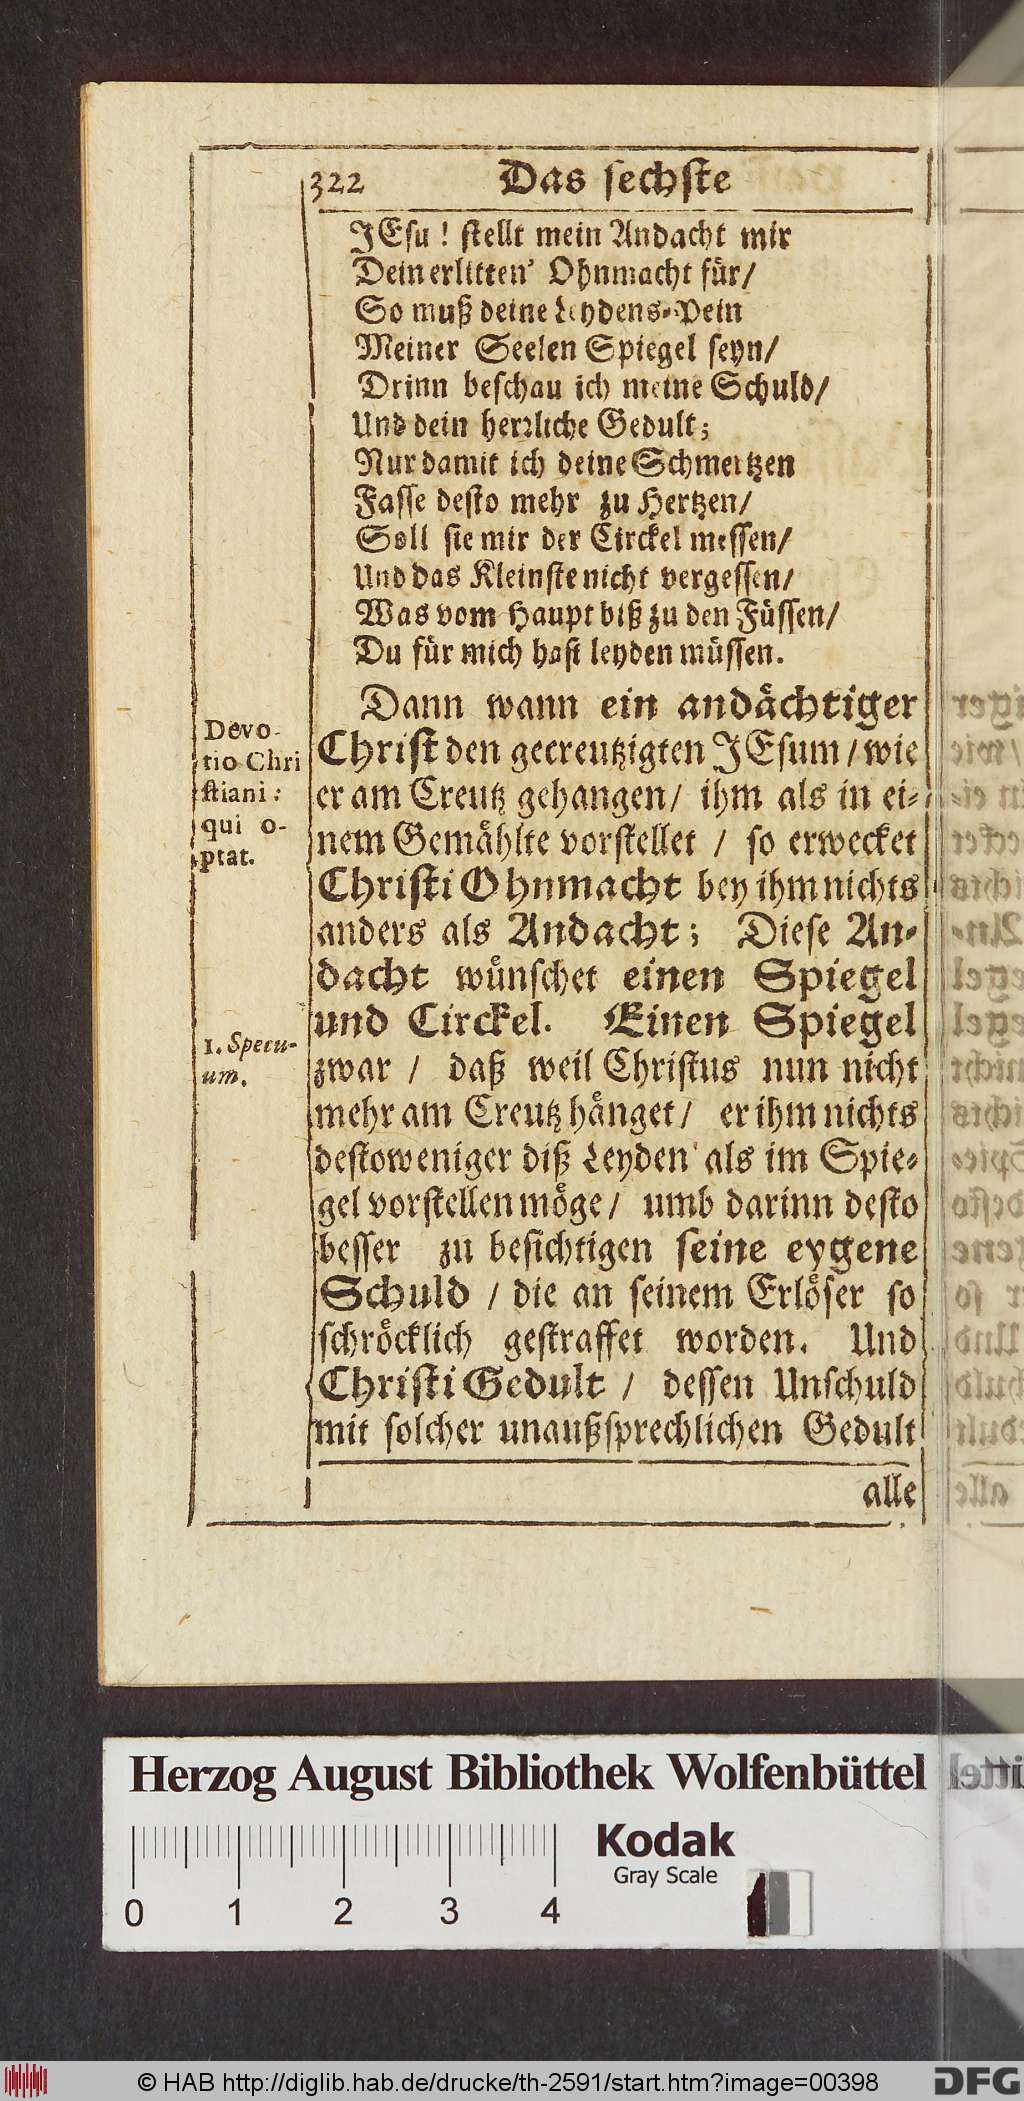 322 Das sechste
JEsu! stellt mein Andacht mir
Dein erlitten' Ohnmacht für/
So muß deine Leydens-Pein
Meiner Seelen Spiegel seyn/
Drinn beschau ich meine Schuld/
Und dein herzliche Gedult;
Nur damit ich deine Schmertzen
Fasse desto mehr zu Hertzen/
Soll sie mir der Circkel messen/
Und das Kleinste nicht vergessen/
Was vom Haupt biß zu den Füssen/
Du für mich hast leyden müssen.
Dann wann ein andächtiger
Christ den gecreutzigten JEsum/ wie
er am Creutz gehangen/ ihm als in ei-
nem Gemählte vorstellet / so erwecket
Christi Ohnmacht bey ihm nichts
anders als Andacht; Diese An-
dacht wünschet einen Spiegel
und Circkel. Einen Spiegel
zwar / daß weil Christus nun nicht
mehr am Creutz hänget/ er ihm nichts
destoweniger diß Leyden als im Spie-
gel vorstellen möge/ umb darinn desto
besser zu besichtigen seine eygene
Schuld / die an seinem Erlöser so
schröcklich gestraffet worden. Und
Christi Gedult / dessen Unschuld
mit solcher unaußsprechlichen Gedult
alle
Devo-
tio Chri
stiani:
qui o-
ptat.
1. Specu-
um.
Herzog August Bibliothek Wolfenbüttel
Kodak
Gray Scale
0 1 2 3 4
© HAB http://diglib.hab.de/drucke/th-2591/start.htm?image=00398
DFG